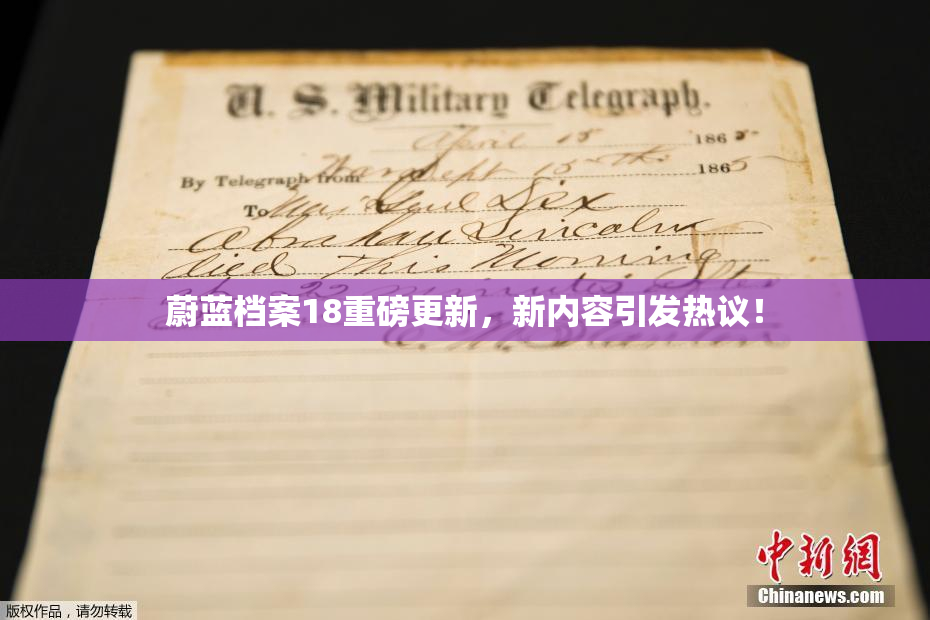 U. S. Military Telegraph.
April 15 1865
By Telegraph from War Dept 15th 1865
To Maj Genl Dix
Abraham Lincoln
died This Morning
at 22 minutes after
蔚蓝档案18重磅更新，新内容引发热议！
E. M. Stanton
中新网
Chinanews.com
版权作品，请勿转载